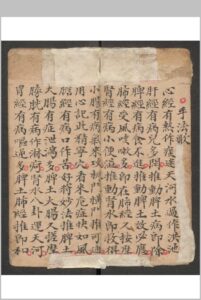 手法歌
心經有熱作痰迷天河水過作洪池
肝經有病人多閉推動脾土病即除
脾經有病食不進推動脾土效必應
肺經受風咳嗽多即在肺經久按摩
腎經有病小便澁推動腎水即救得
小腸有病氣來攻板門橫門推可通
用心記此精寧穴看來危症快如風
膽經有病口作苦好將妙法推脾土
大腸有症泄瀉多脾土大腸久搓摩
膀胱有病作淋疴腎水八卦運天河
胃經有病嘔逆多脾土肺經推即和